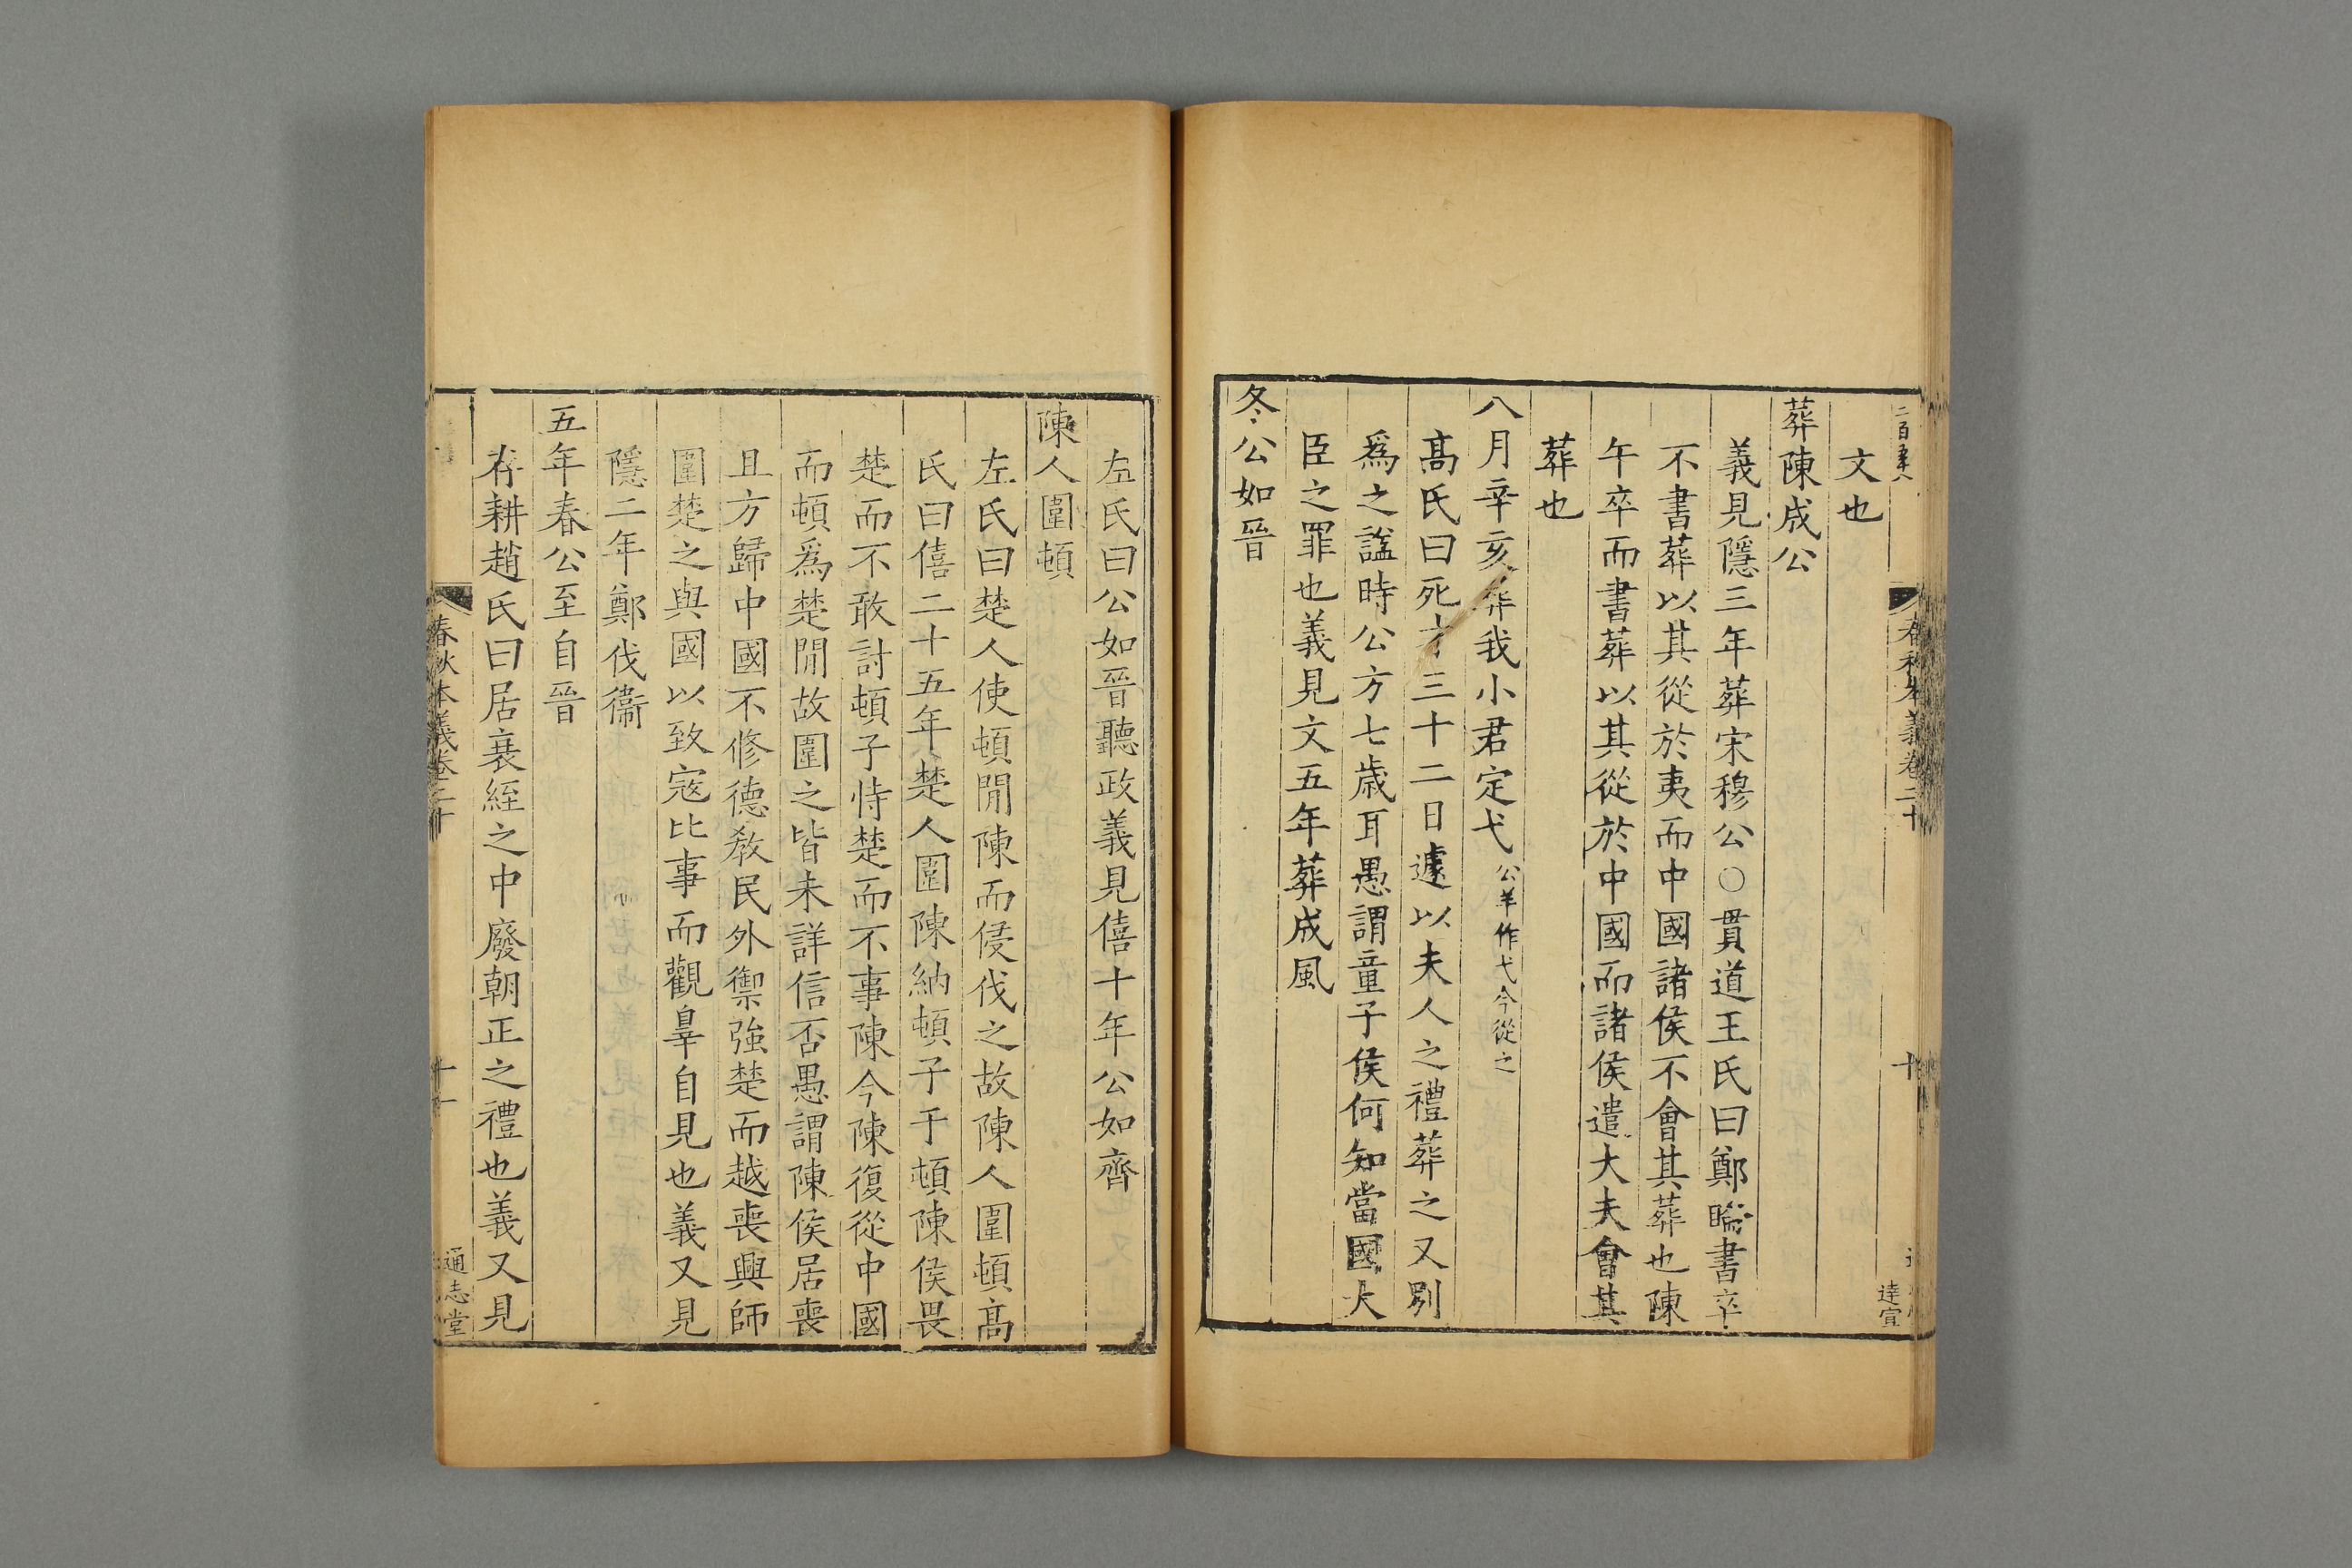 文也
葬陳成公
義見隱三年葬宋穆公○貫道王氏曰鄭睔書卒
不書葬以其從於夷而中國諸侯不會其葬也陳
午卒而書葬以其從於中國而諸侯遣大夫會其
葬也
八月辛亥葬我小君定弋公羊作弋今從之
高氏曰死才三十二日遽以夫人之禮葬之又別
爲之諡時公方七歲耳愚謂童子侯何知當國大
臣之罪也義見文五年葬成風
冬公如晉
春秋本義卷二十
十
達宣
左氏曰公如晉聽政義見僖十年公如齊
陳人圍頓
左氏曰楚人使頓閒陳而侵伐之故陳人圍頓高
氏曰僖二十五年楚人圍陳納頓子于頓陳侯畏
楚而不敢討頓子恃楚而不事陳今陳復從中國
而頓爲楚閒故圍之皆未詳信否愚謂陳侯居喪
且方歸中國不修德教民外禦強楚而越喪興師
圍楚之與國以致寇比事而觀辠自見也義又見
隱二年鄭伐衞
五年春公至自晉
存耕趙氏曰居衰絰之中廢朝正之禮也義又見
春秋本義卷二十
十一
通志堂